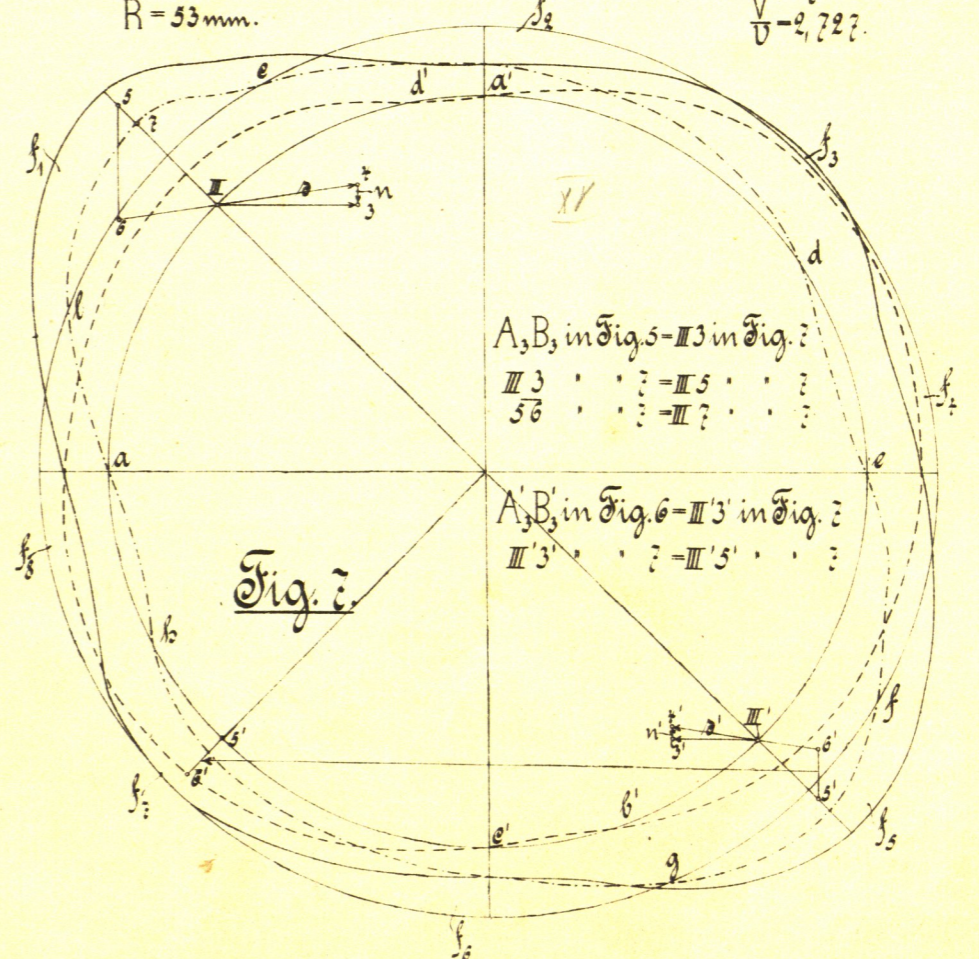 R = 53 mm.
V/v = 2,727.
f₂
e
d'
a'
5
7
f₁
f₃
III
a
4
n
3
6
XV
d
l
A₃B₃ in Fig. 5 = III 3 in Fig. 7
III 3 " " 7 = III 5 " " 7
56 " " 7 = III 7 " " 7
f₄
a
e
A'₃B'₃ in Fig. 6 = III'3' in Fig. 7
III'3' " " 7 = III'5' " " 7
f₈
Fig. 7.
h
f
III'
4'
a'
n'
3'
5'
6'
6'
5'
f₇
b'
e'
f₅
g
f₆